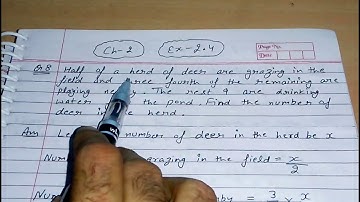 Ch-2 Ex-2.4
Page No.
Date
Q.8 Half of a herd of deer are grazing in the
field and three fourth of the remaining are
playing The rest 9 are drinking
water the pond. Find the number of
deer in the herd.
Ans number of deer in the herd be x
grazing in the field = x/2
= 3/ × x